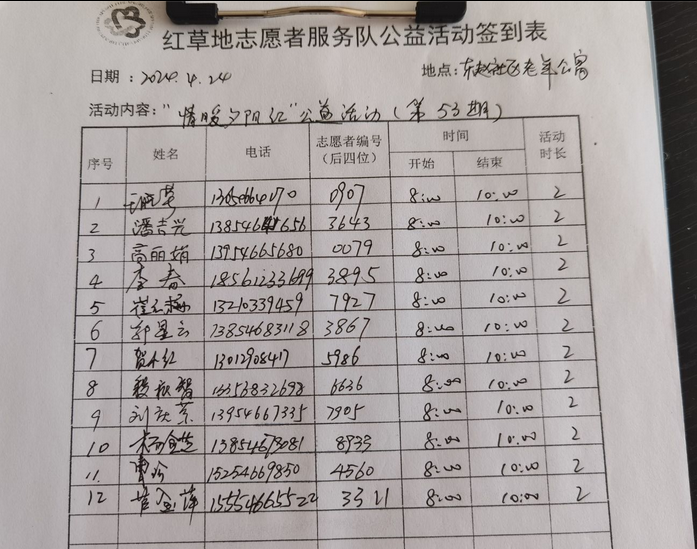 红草地志愿者服务队公益活动签到表
日期：2024.4.24 地点：东赵社区老年公寓
活动内容："情暖夕阳红"公益活动（第53期）
序号 姓名 电话 志愿者编号（后四位） 时间 开始 结束 活动时长
1 0907 8:00 10:00 2
2 潘吉兴 3643 8:00 10:00 2
3 高丽娟 13954665680 0079 8:00 10:00 2
4 李春 18561233699 3895 8:00 10:00 2
5 崔云 13210339459 7927 8:00 10:00 2
6 郭星云 13854683118 3867 8:00 10:00 2
7 贺 13012908417 5986 8:00 10:00 2
8 振智 6636 8:00 10:00 2
9 刘庆 13954667335 7905 8:00 10:00 2
10 13854679081 8933 8:00 10:00 2
11. 曹 15254669850 4560 8:00 10:00 2
12 萍 15554665522 3311 8:00 10:00 2